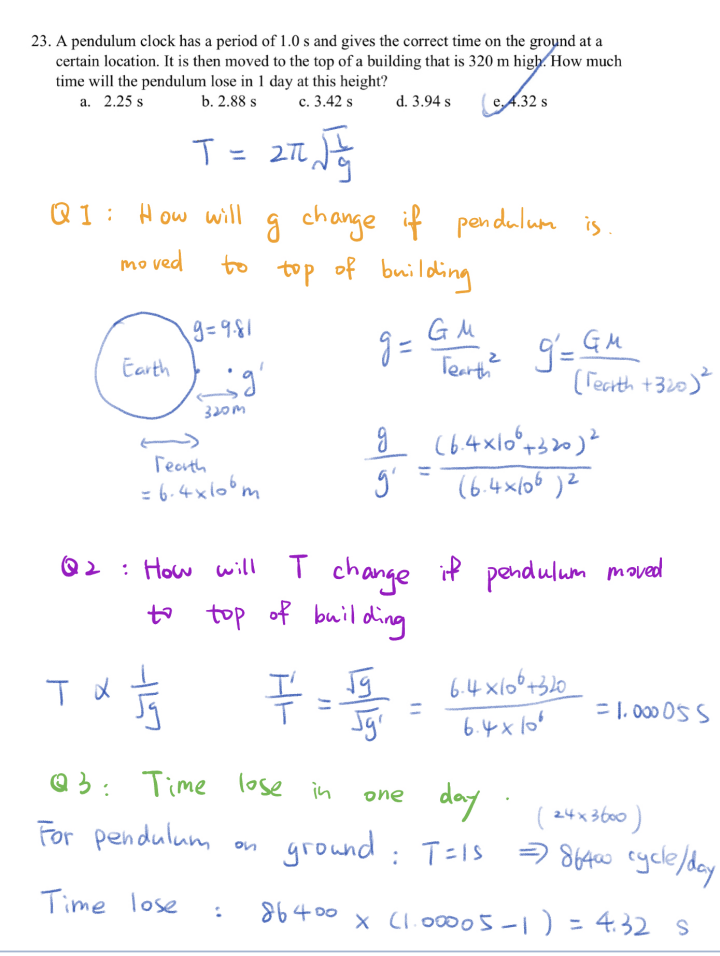 23. A pendulum clock has a period of 1.0 s and gives the correct time on the ground at a
certain location. It is then moved to the top of a building that is 320 m high. How much
time will the pendulum lose in 1 day at this height?
a. 2.25 s b. 2.88 s c. 3.42 s d. 3.94 s e. 4.32 s
T = 2π √(l/g)
Q1 : How will g change if pendulum is.
moved to top of building
g = 9.81
Earth
g'
320m
rearth
= 6.4×10⁶ m
g = GM / rearth² g' = GM / (rearth + 320)²
g / g' = (6.4×10⁶ + 320)² / (6.4×10⁶)²
Q2 : How will T change if pendulum moved
to top of building
T ∝ 1/√g T'/T = √g/√g' = 6.4×10⁶+320 / 6.4×10⁶ = 1.00005 s
Q3 : Time lose in one day .
(24×3600)
For pendulum on ground : T=1s ⇒ 86400 cycle/day
Time lose : 86400 × (1.00005 − 1) = 4.32 s